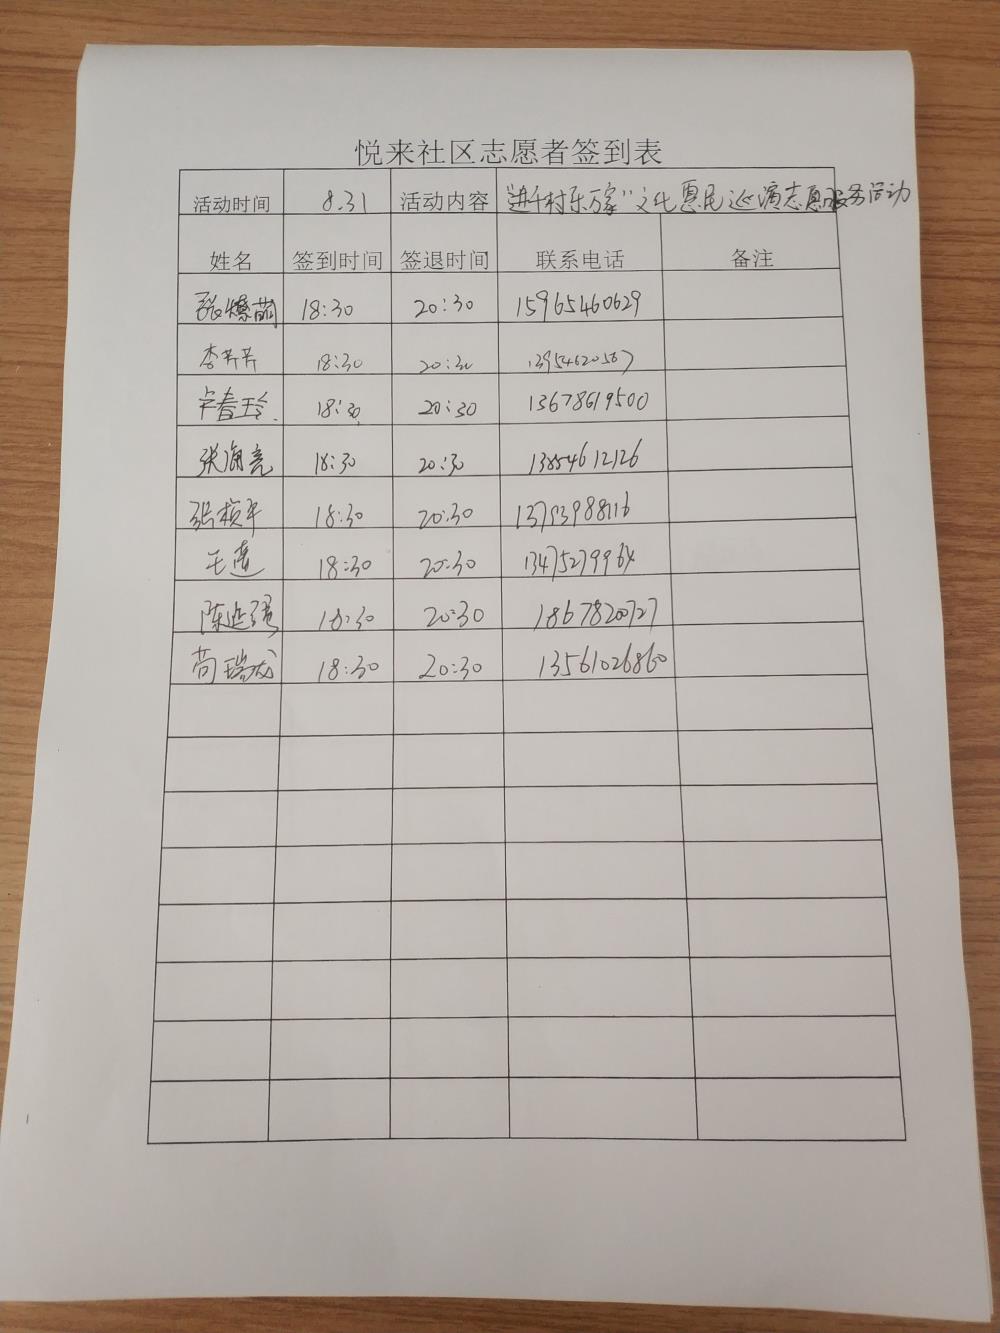 悦来社区志愿者签到表
活动时间 8.31 活动内容 "进千村乐万家"文化惠民巡演志愿服务活动
姓名 签到时间 签退时间 联系电话 备注
18:30 20:30 15965460629
李芹芹 18:30 20:30 13954620567
卢春玲 18:30 20:30 13678619500
张海亮 18:30 20:30 13854612126
张桢平 18:30 20:30 13793988116
王莲 18:30 20:30 13475279964
陈延强 18:30 20:30 1867820727
苟瑞龙 18:30 20:30 13561026860